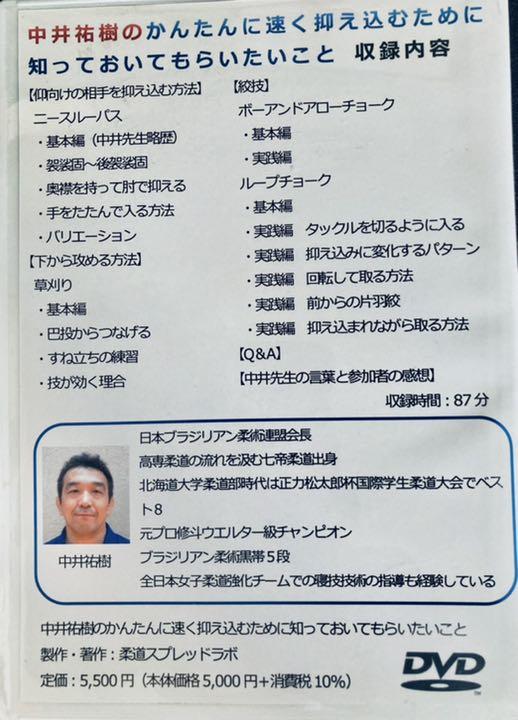 中井祐樹のかんたんに速く抑え込むために
知っておいてもらいたいこと 収録内容
【仰向けの相手を抑え込む方法】
ニースルーパス
・基本編（中井先生略歴）
・袈裟固～後袈裟固
・奥襟を持って肘で抑える
・手をたたんで入る方法
・バリエーション
【下から攻める方法】
草刈り
・基本編
・巴投からつなげる
・すね立ちの練習
・技が効く理合
【絞技】
ボーアンドアローチョーク
・基本編
・実践編
ループチョーク
・基本編
・実践編 タックルを切るように入る
・実践編 抑え込みに変化するパターン
・実践編 回転して取る方法
・実践編 前からの片羽絞
・実践編 抑え込まれながら取る方法
【Q&A】
【中井先生の言葉と参加者の感想】
収録時間：87分
日本ブラジリアン柔術連盟会長
高専柔道の流れを汲む七帝柔道出身
北海道大学柔道部時代は正力松太郎杯国際学生柔道大会でベス
ト8
元プロ修斗ウエルター級チャンピオン
ブラジリアン柔術黒帯５段
全日本女子柔道強化チームでの寝技技術の指導も経験している
中井祐樹
中井祐樹のかんたんに速く抑え込むために知っておいてもらいたいこと
製作・著作：柔道スプレッドラボ
定価：5,500円（本体価格5,000円＋消費税10%）
DVD
TM